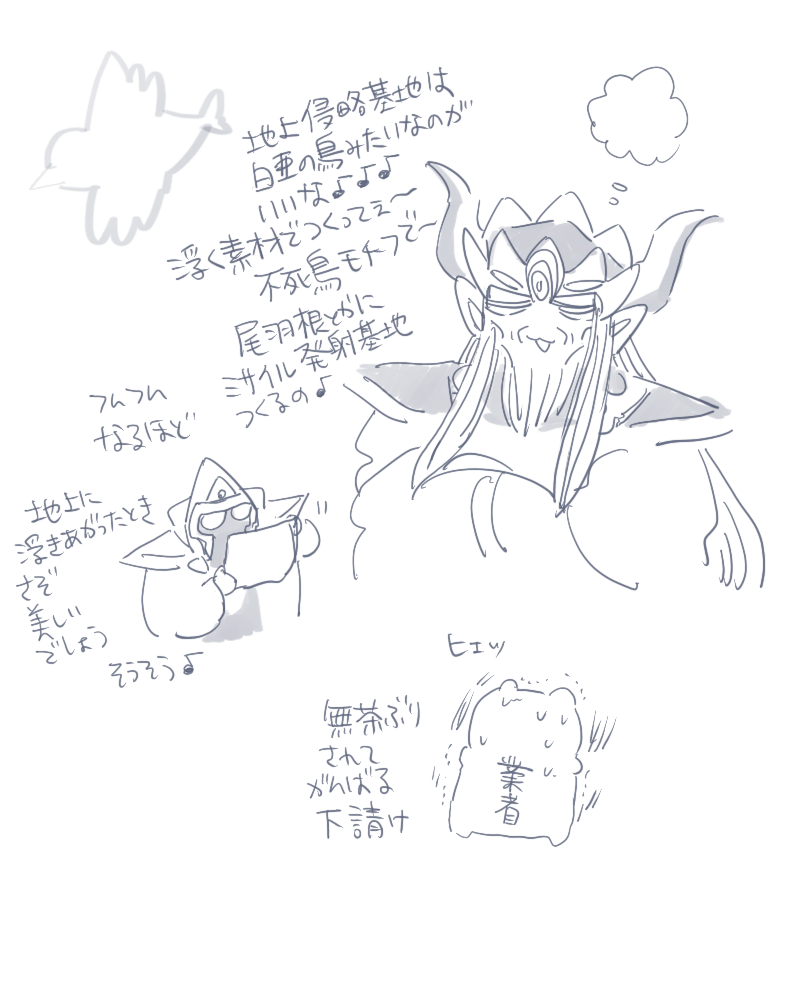 地上侵略基地は
白亜の鳥みたいなのが
いいな♪♪♪
浮く素材でつくってぇ〜
不死鳥モチーフで〜
尾羽根とかに
ミサイル発射基地
つくるの♪
フムフム
なるほど
地上に
浮きあがったとき
さぞ
美しい
でしょう
そうそう♪
ヒェッ
無茶ぶり
されて
がんばる
下請け
業者